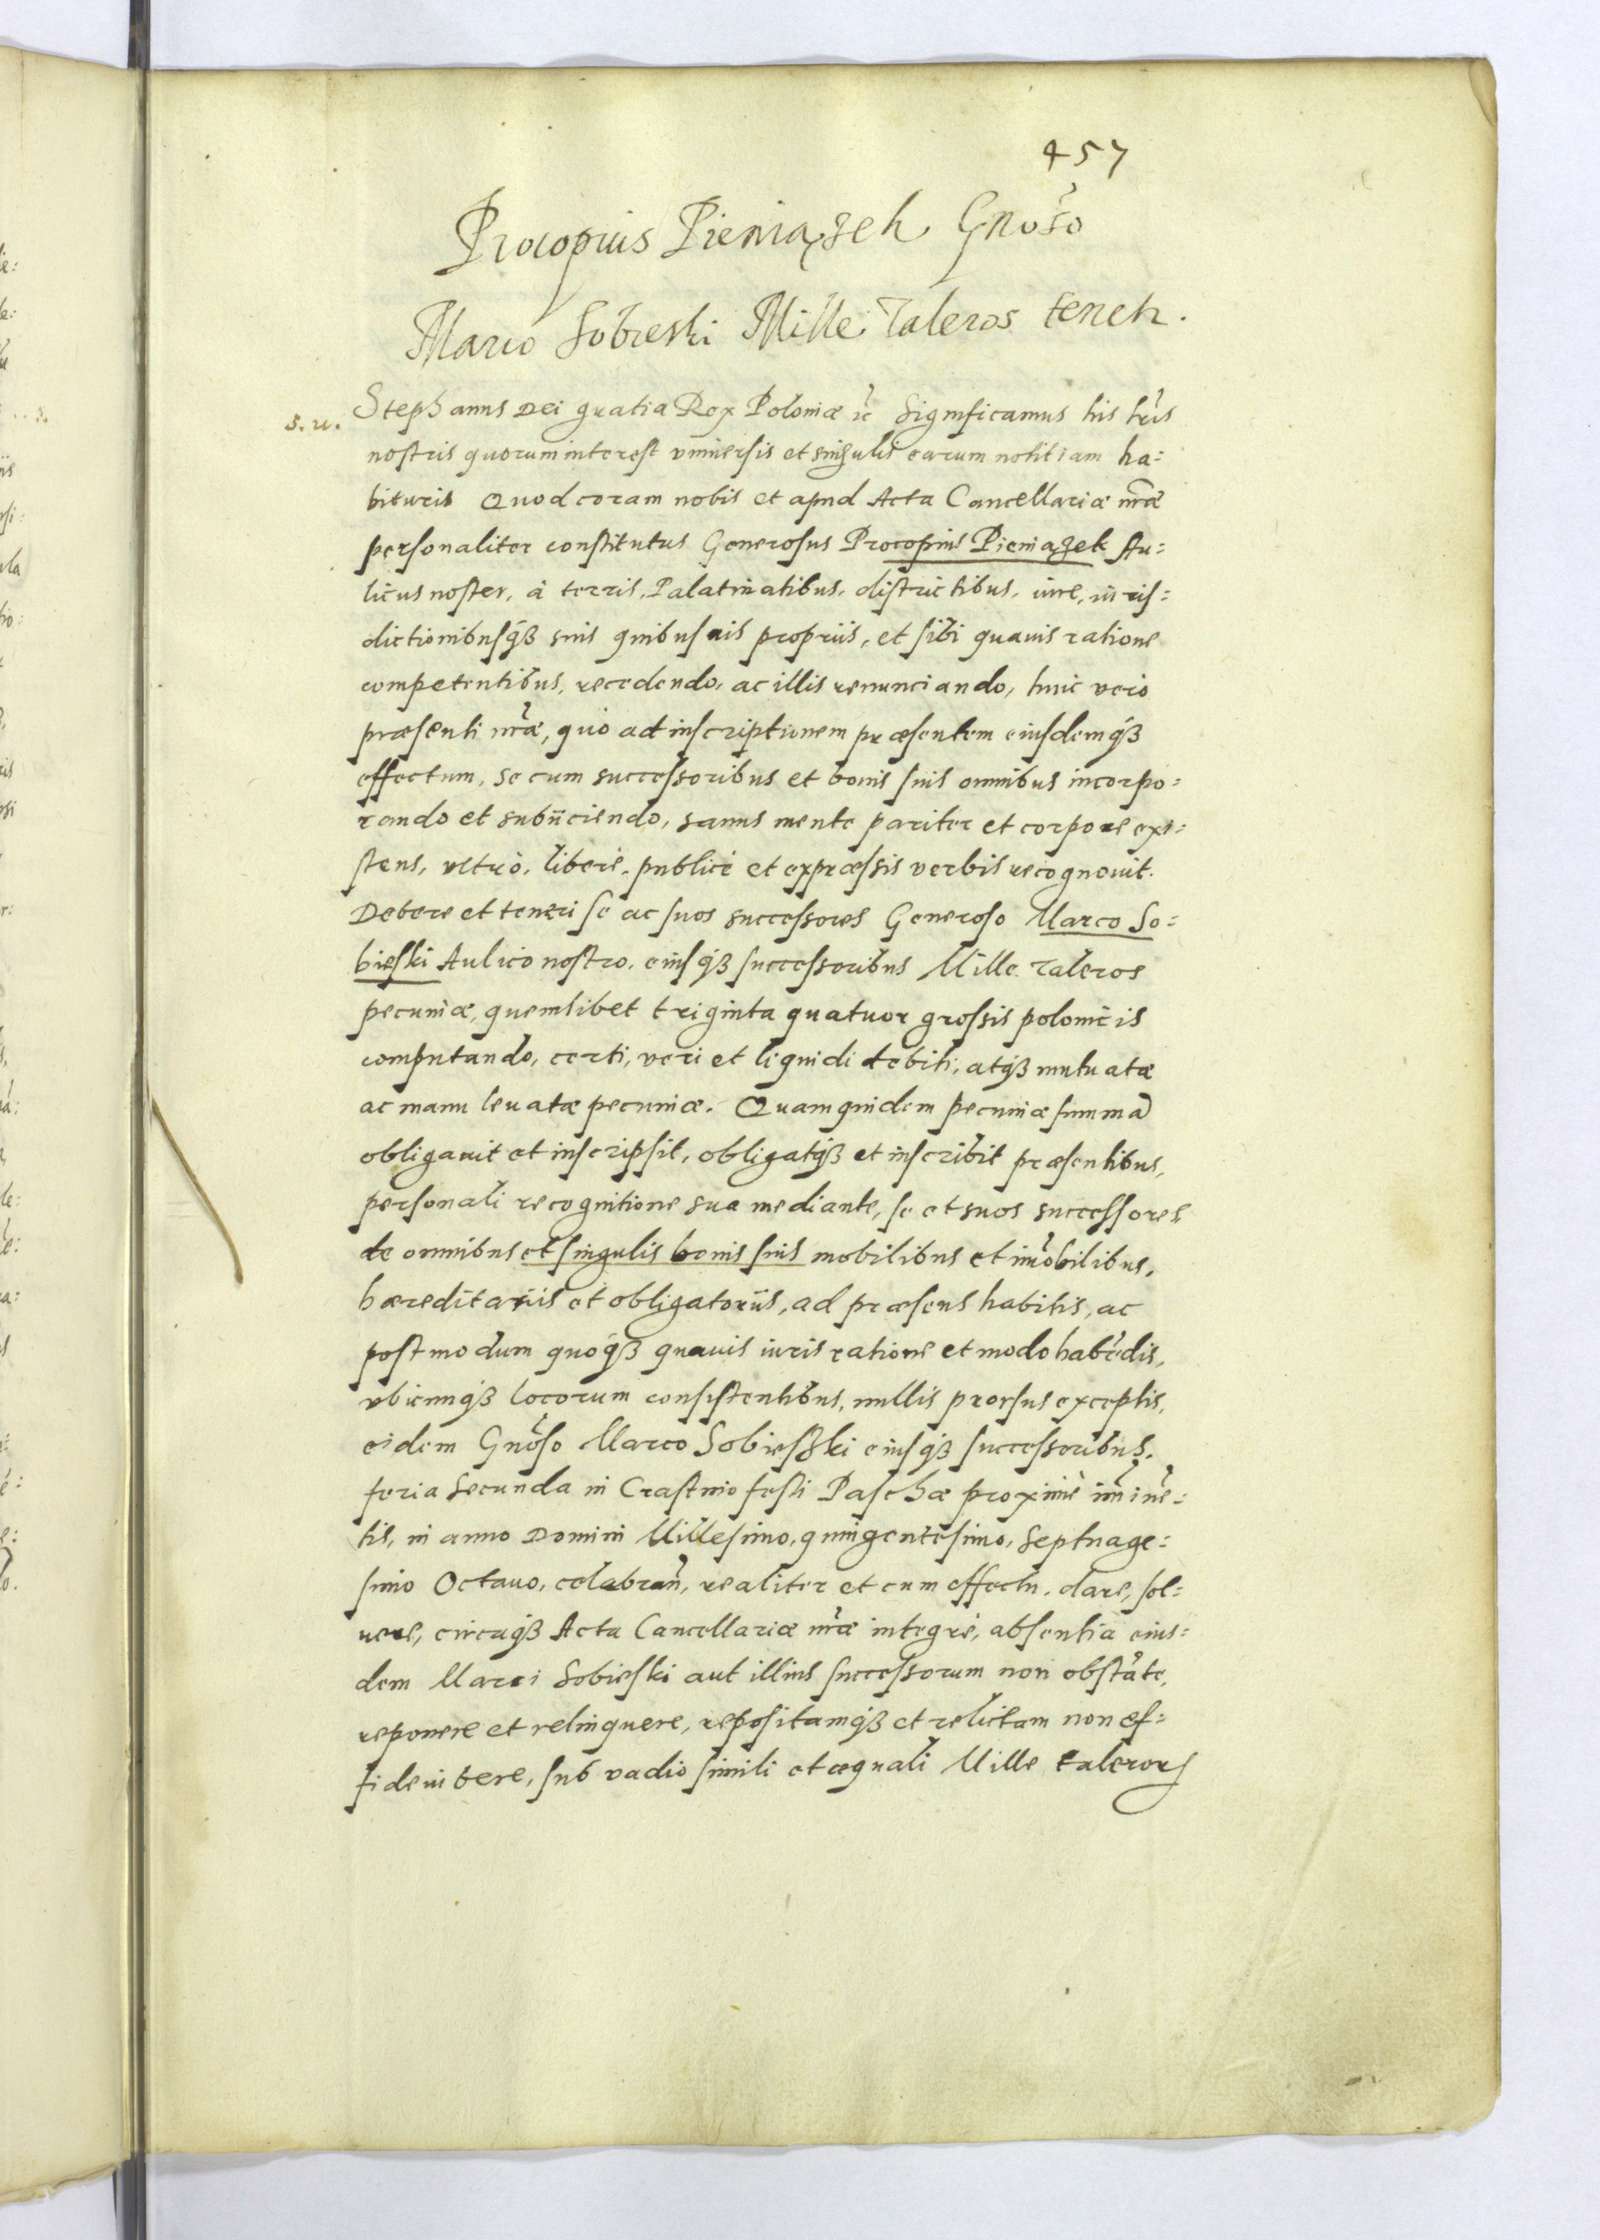 457
Procopius Pieniązek Gnõso
Marco Sobieski Mille Taleros tenetr.
s. u.
Stephanus Dei gratia Rex Poloniæ ɾc Significamus his lrĩs
nostris quorum interest vniuersis et singulis earum notitiam ha:
bituris Quod coram nobis et apud Acta Cancellariæ nrãe
personaliter constitutus Generosus Procopius Pieniązek Au:
licus noster, à terris, Palatinatibus, districtibus, iure, iuris:
dictionibusqȝ suis quibusuis propriis, et sibi quauis ratione
competentibus, recedendo, ac illis renunciando, huic vero
præsenti nrãe, quo ad inscriptionem præsentem eiusdemqȝ
effectum, se cum successoribus et bonis suis omnibus incorpo:
rando et subiiciendo, sanus mente pariter et corpore exi:
stens, vltrò, liberè, publicè et expræssis verbis recognouit.
Debere et teneri se ac suos successores Generoso Marco So:
bieski Aulico nostro, eiusqȝ successoribus Mille Taleros
pecuniæ, quemlibet triginta quatuor grossis polonicis
computando, certi, veri et liquidi debiti, atqȝ mutuatæ
ac manu leuatæ pecuniæ. Quam quidem pecuniæ summã
obligauit et inscripsit, obligatqȝ et inscribit præsentibus,
personali recognitione sua mediante, se et suos successores
de omnibus et singulis bonis suis mobilibus et imõbilibus,
hæreditariis et obligatoriis, ad præsens habitis, ac
postmodum quoqȝ quauis iuris ratione et modo habẽdis,
vbicunqȝ locorum consistentibus, nullis prorsus exceptis,
eidem Gnõso Marco Sobieszki eiusqȝ successoribus.
feria Secunda in Crastino festi Paschæ proximè im̃inẽ:
tis, in anno Domini Millesimo, quingentesimo, Septuage:
simo Octauo, celebran̄, realiter et cum effectu, dare, sol:
uere, circaqȝ Acta Cancellariæ nrãe integrè, absentia eius:
dem Marci Sobieski aut illius successorum non obstãte,
reponere et relinquere, repositamqȝ et relictam non ef:
fide iubere, sub vadio simili et æquali Mille talerorꝭ